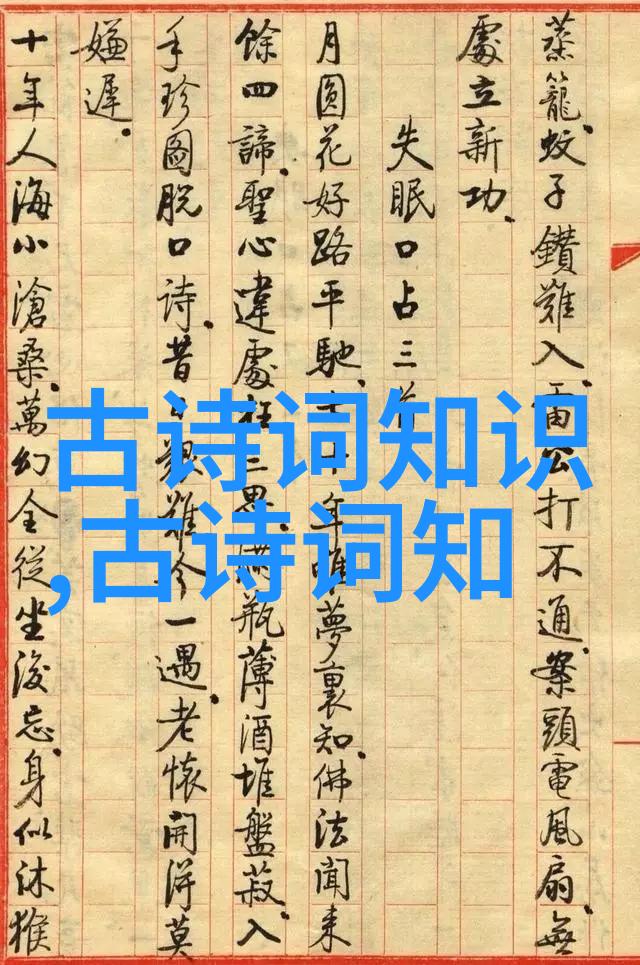 蒸籠、蚊子鑽難入、雷公打不通、案頭電風扇、無
處立新功、
失眠口占三首
月圓花好路平馳、十年夢裏知、佛法聞来
餘四諦、聖心違處三瓶薄酒堆盤菽、入
手珍圖脫口詩、昔難今一遇、老懷開得莫
嫌遲、
十年人海小滄桑、萬幻全從坐後忘、身似沐猴
古诗词知识
,古诗词知